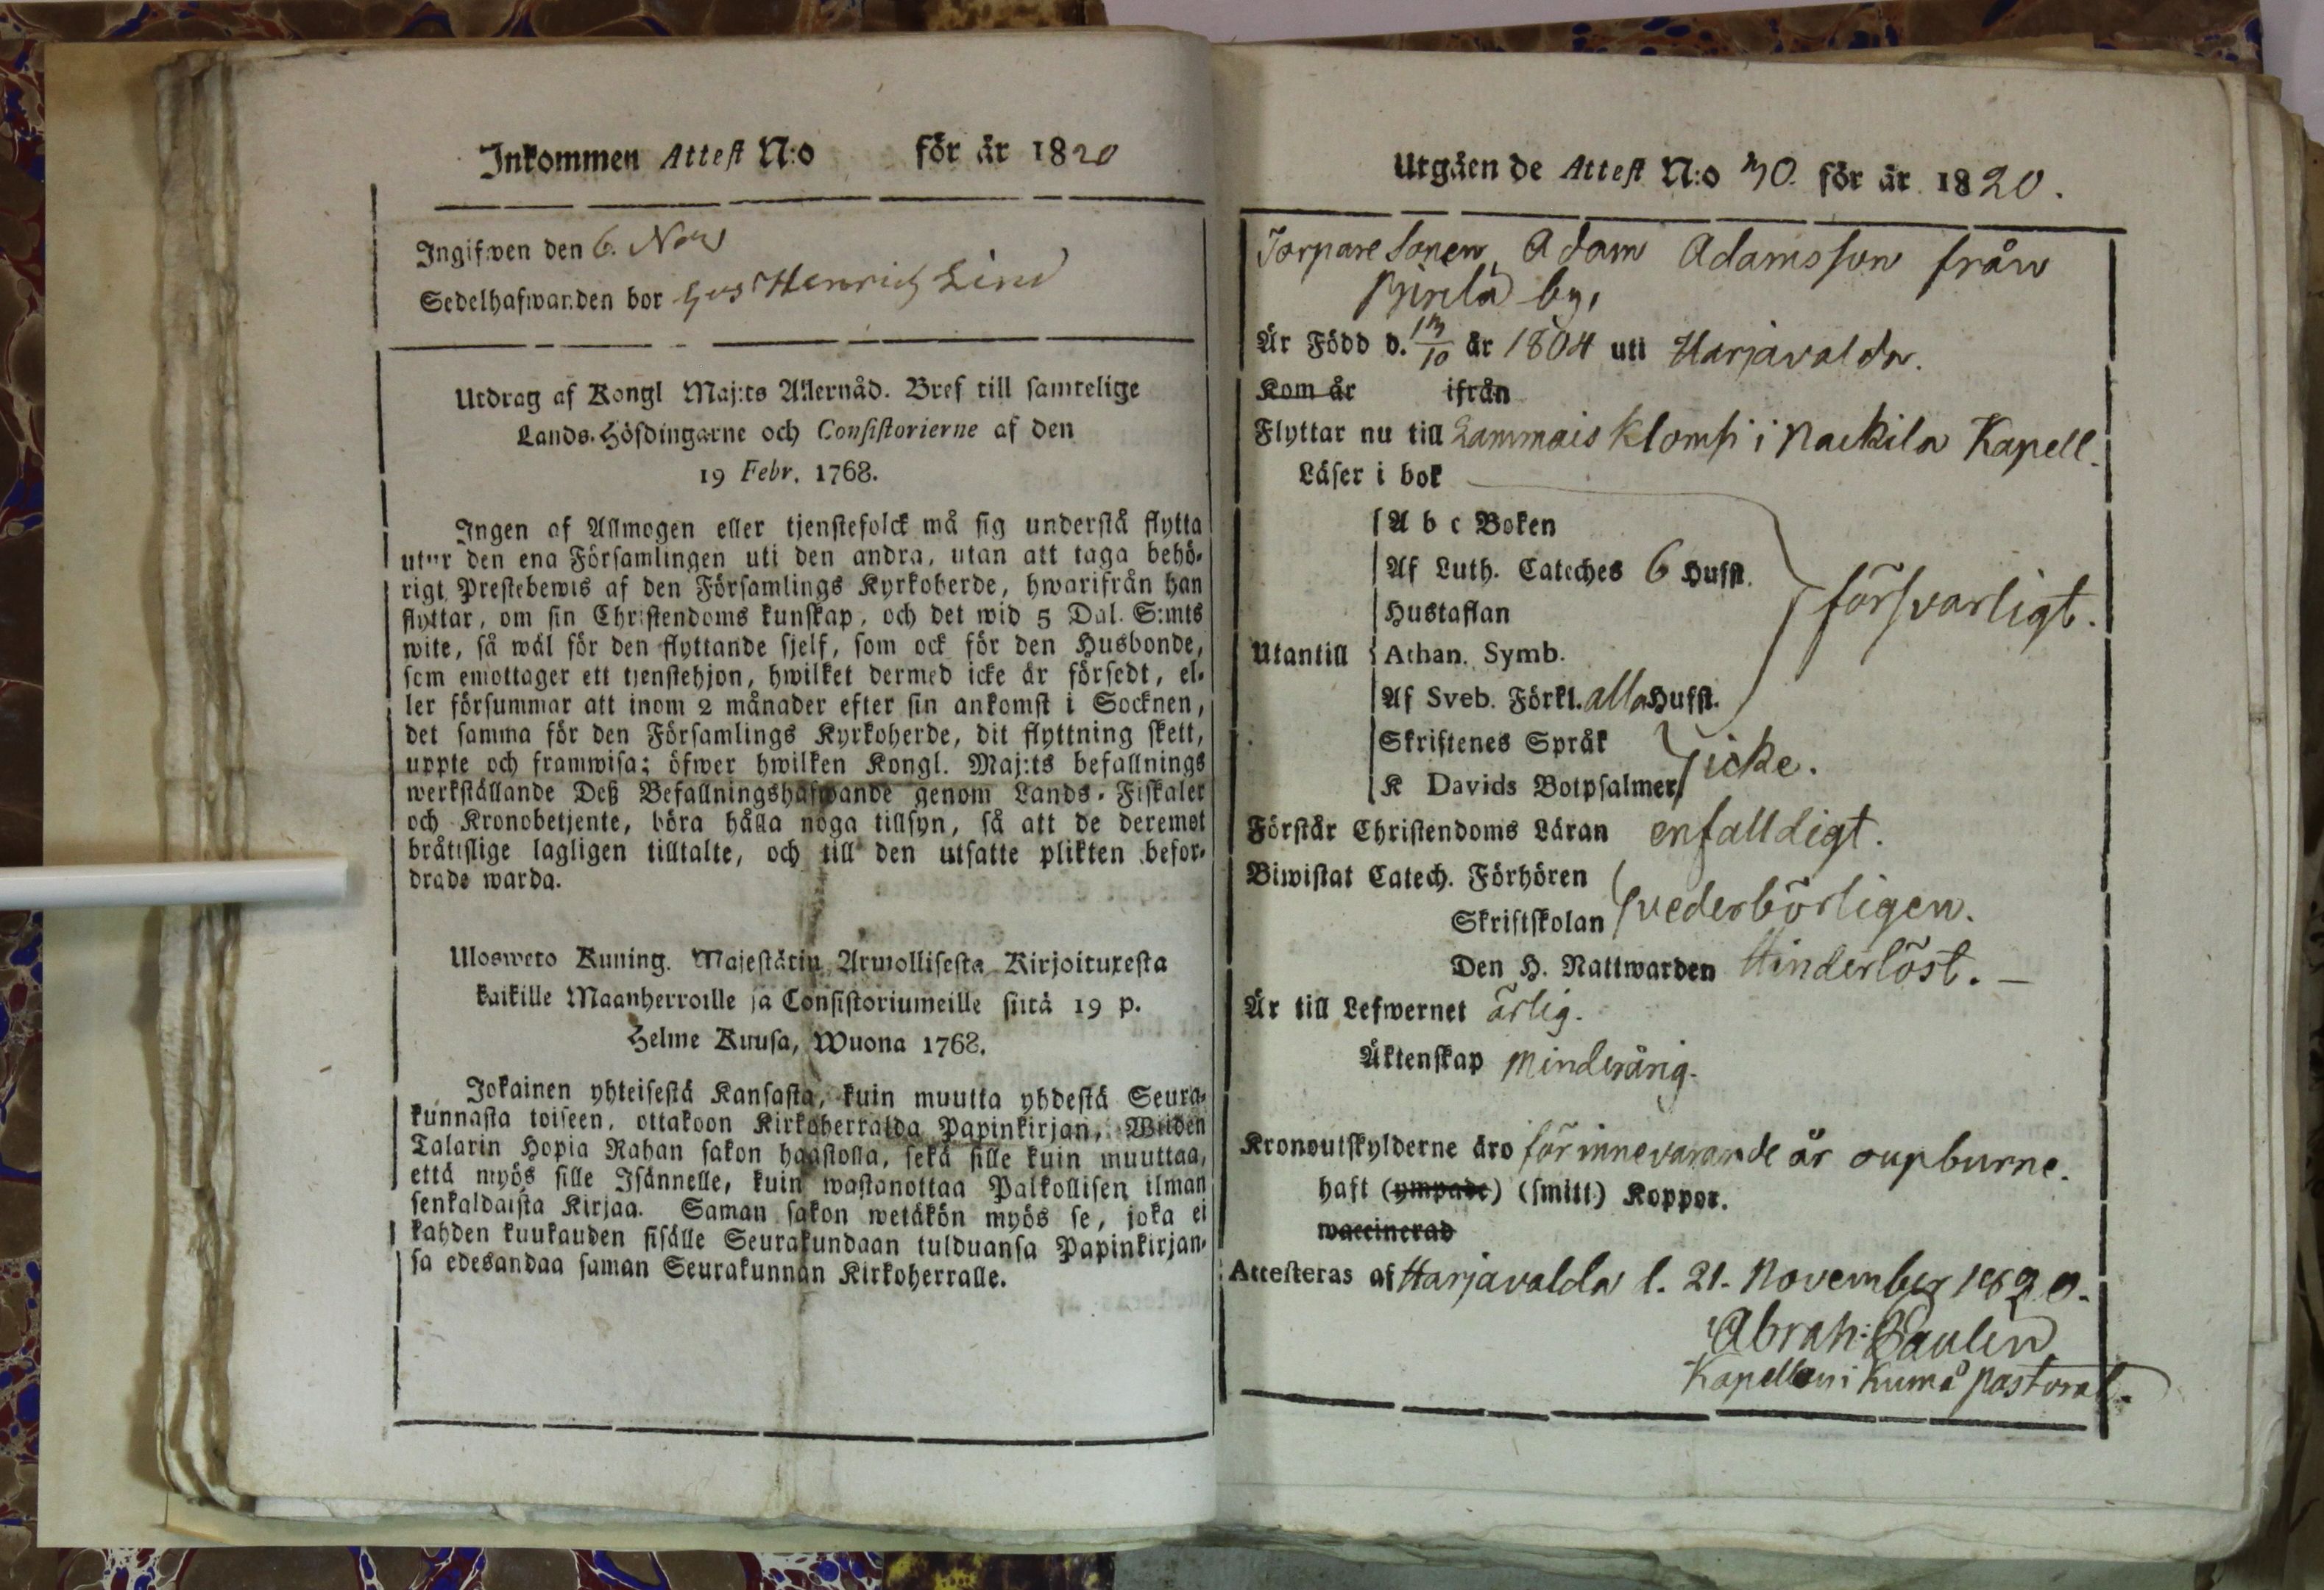 Inkommen Attest N:o för år 1820
Ingifwen den 6. Nov
Sedelhafwanden bor hos Henrich Lind
Utdrag af Kongl Maj:ts Allernåd. Bref till samtelige
Lands-Höfdingarne och Consistorierne af den
19 Febr. 1768.
Ingen af Allmogen eller tjenstefolck må sig understå flytta
utur den ena Församlingen uti den andra, utan att taga behö-
rigt Prestebewis af den Församlings Kyrkoherde, hwarifrån han
flyttar, om sin Christendoms kunskap, och det wid 5 Dal. S:mts
wite, så wäl för den flyttande sjelf, som ock för den Husbonde,
som emottager ett tjenstehjon, hwilket dermed icke är försedt, el-
ler försummar att inom 2 månader efter sin ankomst i Socknen,
det samma för den Församlings Kyrkoherde, dit flyttning skett,
uppte och framwisa; öfwer hwilken Kongl. Maj:ts befallnings
werkställande Deß Befallningshafwande genom Lands-Fiskaler
och Kronobetjente, böra hålla noga tillsyn, så att de deremot
bråttslige lagligen tilltalte, och till den utsatte plikten befor-
drade warda.
Ulosweto Kuning. Majestätin Armollisesta Kirjoituxesta
kaikille Maanherroille ja Consistoriumeille siitä 19 p.
Helme Kuusa, Wuona 1768.
Jokainen yhteisestä Kansasta, kuin muutta yhdestä Seura-
kunnasta toiseen, ottakoon Kirkoherralda Papinkirjan, Wiiden
Talarin Hopia Rahan sakon haastolla, sekä sille kuin muuttaa,
että myös sille Isännelle, kuin wastanottaa Palkollisen ilman
senkaldaista Kirjaa. Saman sakon wetäkön myös se, joka ei
kahden kuukauden sisälle Seurakundaan tulduansa Papinkirjan-
sa edesandaa saman Seurakunnan Kirkoherralle.
Utgåen de Attest N:o 30. för år 1820.
Torpare Sonen Adam Adamsson från
by,
Är Född d. 13/10 år 1804 uti Harjavalda.
Kom år ifrån
Flyttar nu till Lammais Klompi i Nackila Kapell.
Läser i bok
A b c Boken
Af Luth. Cateches 6 Hufst.
Hustaflan
försvarligt.
Utantill Athan. Symb.
Af Sveb. Förkl. alla Hufst.
Skriftenes Språk
icke.
K Davids Botpsalmer
Förstår Christendoms Läran enfalldigt.
Biwistat Catech. Förhören
Skriftskolan vederbörligen.
Den H. Nattwarden Hinderlöst. —
Är till Lefwernet ärlig.
Äktenskap Minderårig.
Kronoutskylderne äro för innevarande år oupburne.
haft (ympade) (smitt) Koppor.
waccinerad
Attesteras af Harjavalda d. 21. November 1820.
Abrah: Paulin
Kapellan i Kumå Pastorat.